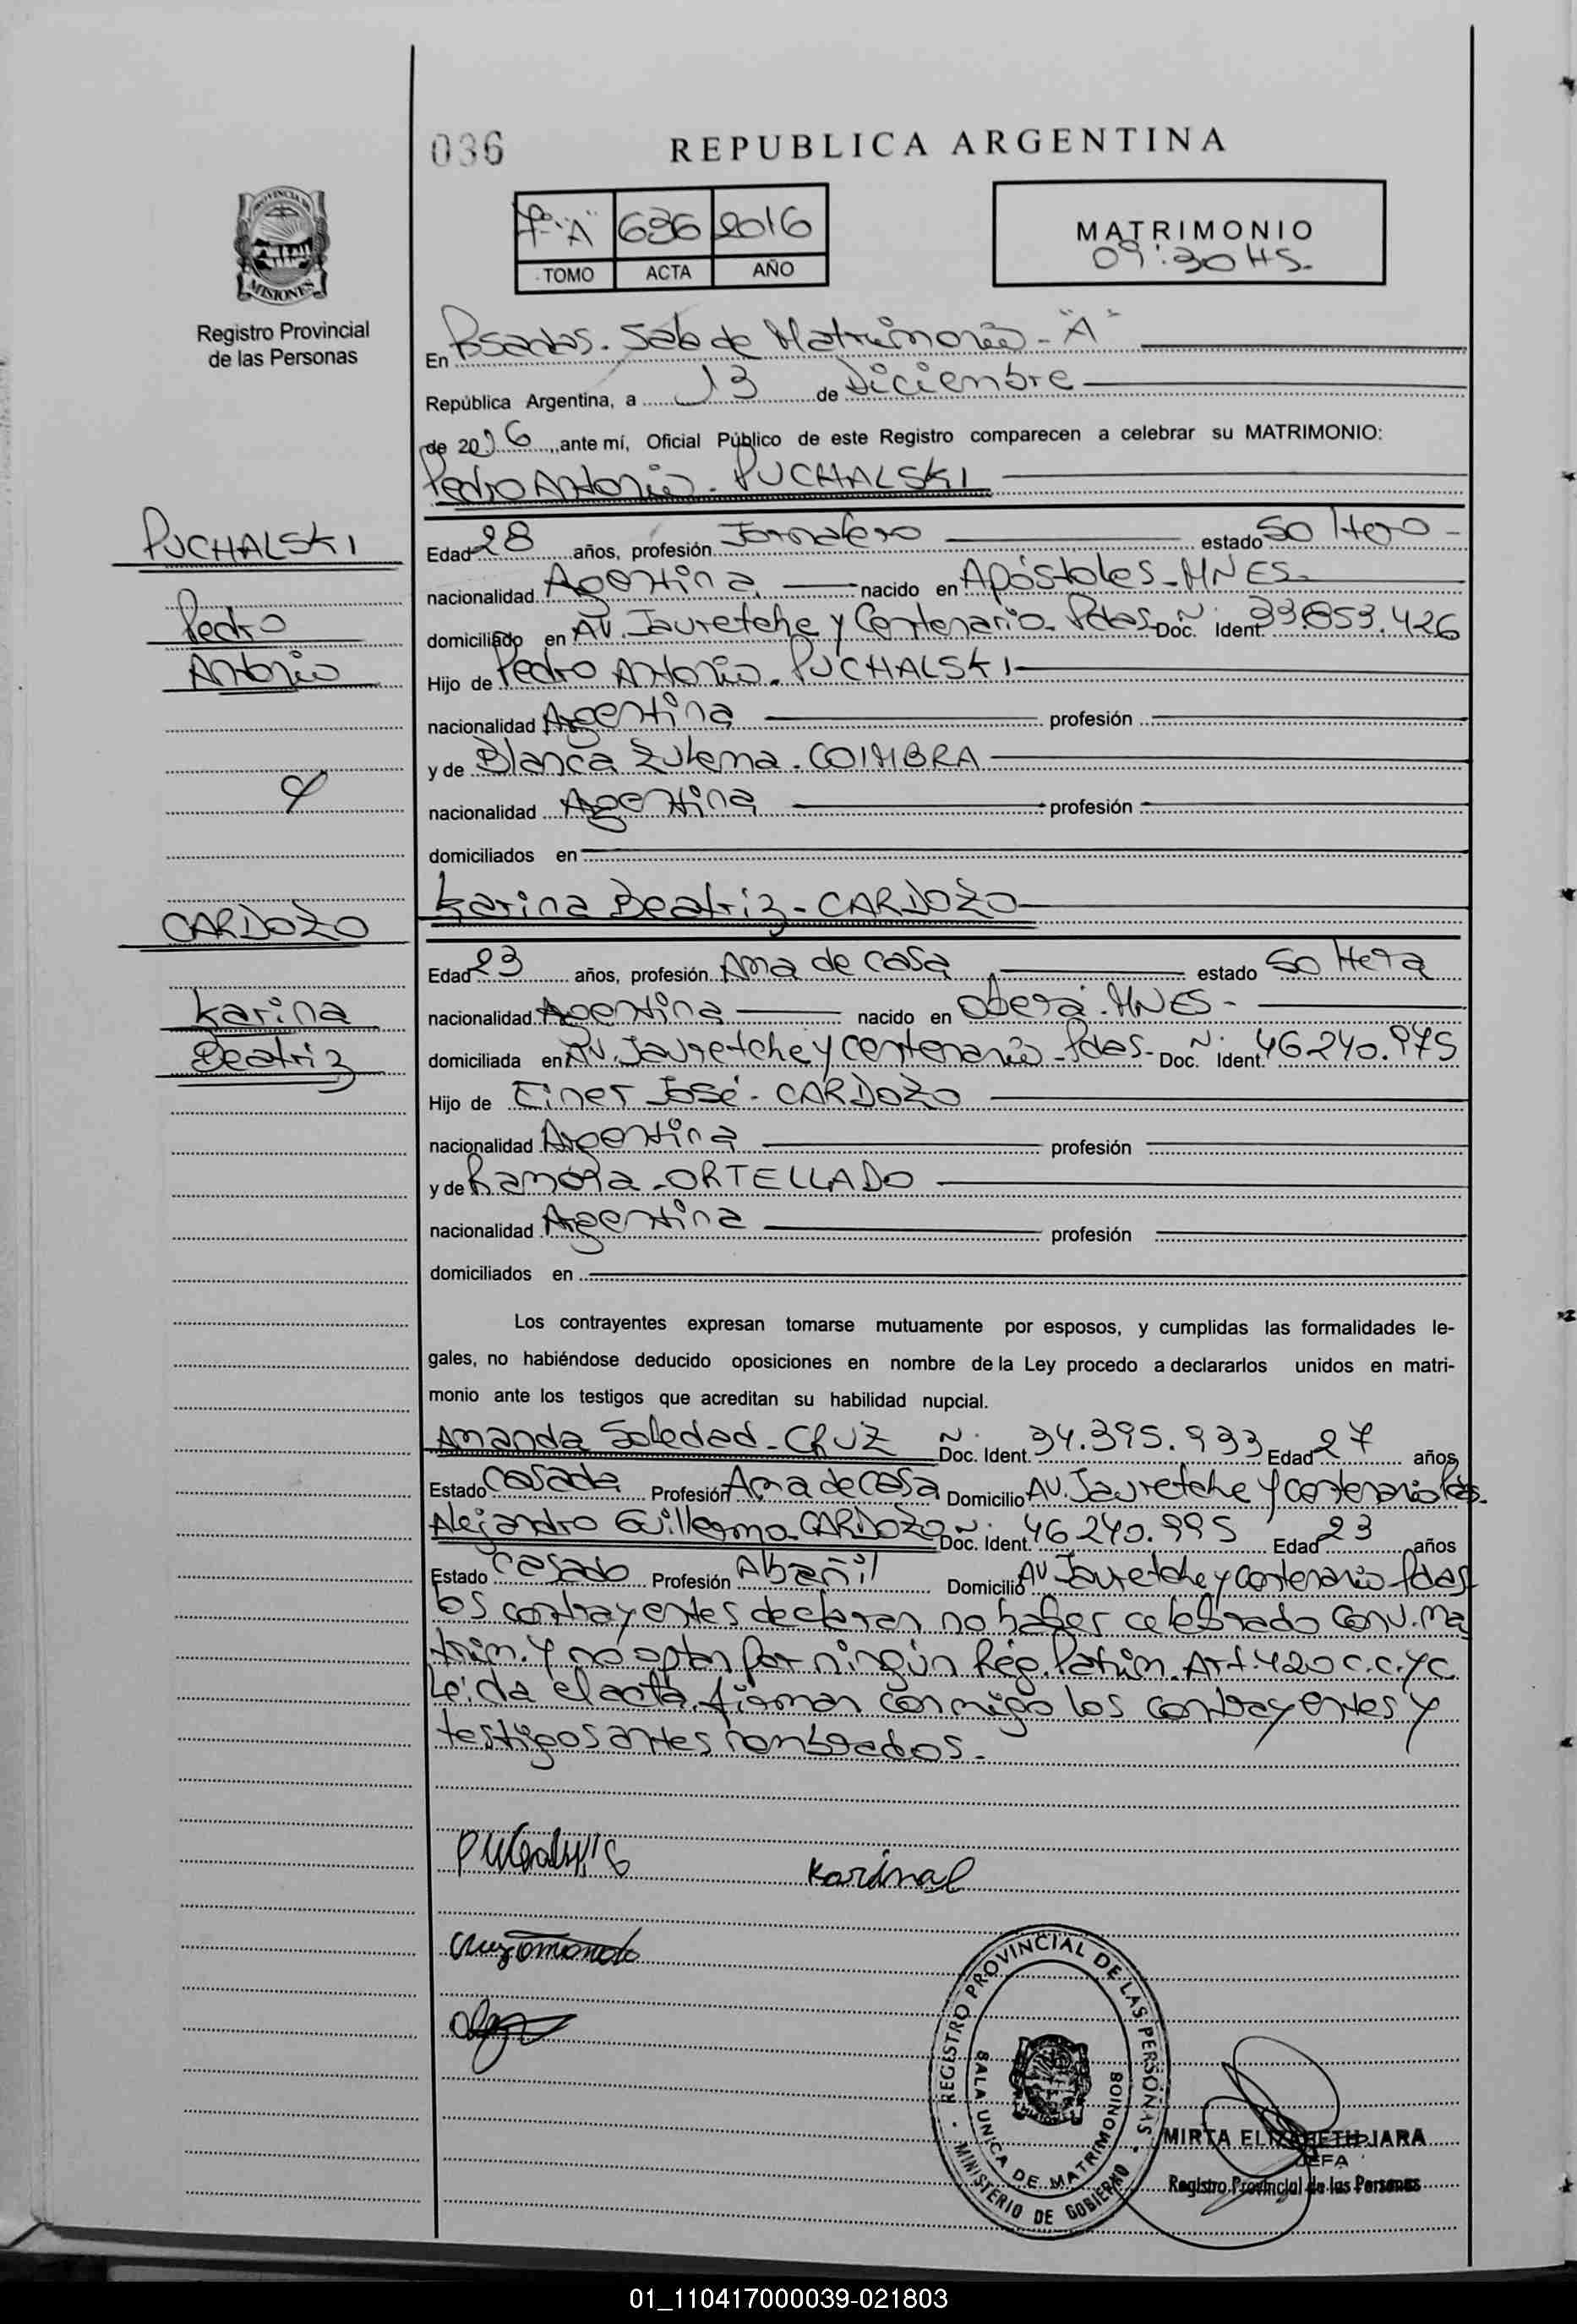 036
REPUBLICA ARGENTINA
7º "A" 636 2016
TOMO ACTA AÑO
MATRIMONIO
09:30 HS.
PROVINCIA DE
MISIONES
Registro Provincial
de las Personas
En Posadas. Sala de Matrimonio - "A"
República Argentina, a 13 de Diciembre
de 2016, ante mí, Oficial Público de este Registro comparecen a celebrar su MATRIMONIO:
Pedro Antonio. PUCHALSKI
PUCHALSKI
Pedro
Antonio
Edad 28 años, profesión Jornalero estado Soltero -
nacionalidad Argentina nacido en Apóstoles - MNES -
domiciliado en AV. Jauretche y Centenario - Pdas. Doc. Ident. 33.853.426
Hijo de Pedro Antonio. PUCHALSKI
nacionalidad Argentina profesión
y de Blanca Zulema. COIMBRA
nacionalidad Argentina profesión
domiciliados en
y
Karina Beatriz - CARDOZO
CARDOZO
Karina
Beatriz
Edad 23 años, profesión Ama de casa estado Soltera
nacionalidad Argentina nacido en Oberá. MNES -
domiciliada en AV. Jauretche y Centenario - Pdas - Doc. Ident. 46.240.975
Hijo de Einer José - CARDOZO
nacionalidad Argentina profesión
y de Ramona - ORTELLADO
nacionalidad Argentina profesión
domiciliados en
Los contrayentes expresan tomarse mutuamente por esposos, y cumplidas las formalidades le-
gales, no habiéndose deducido oposiciones en nombre de la Ley procedo a declararlos unidos en matri-
monio ante los testigos que acreditan su habilidad nupcial.
Amanda Soledad - CRUZ Doc. Ident. 34.395.933 Edad 27 años
Estado Casada Profesión Ama de casa Domicilio AV. Jauretche y Centenario Pdas.
Alejandro Guillermo CARDOZO Doc. Ident. 46.240.995 Edad 23 años
Estado Casado Profesión Albañil Domicilio AV Jauretche y Centenario - Pdas
Los contrayentes declaran no haber celebrado Conv. Ma
trim. y no optan por ningún Rég. Patrim. Art. 420 C.C. y C.
Leída el acta, firman conmigo los contrayentes y
testigos antes nombrados. -
Karina
REGISTRO PROVINCIAL DE LAS PERSONAS
SALA UNICA DE MATRIMONIOS
MINISTERIO DE GOBIERNO
MIRTA ELIZABETH JARA
JEFA
Registro Provincial de las Personas
01_110417000039-021803